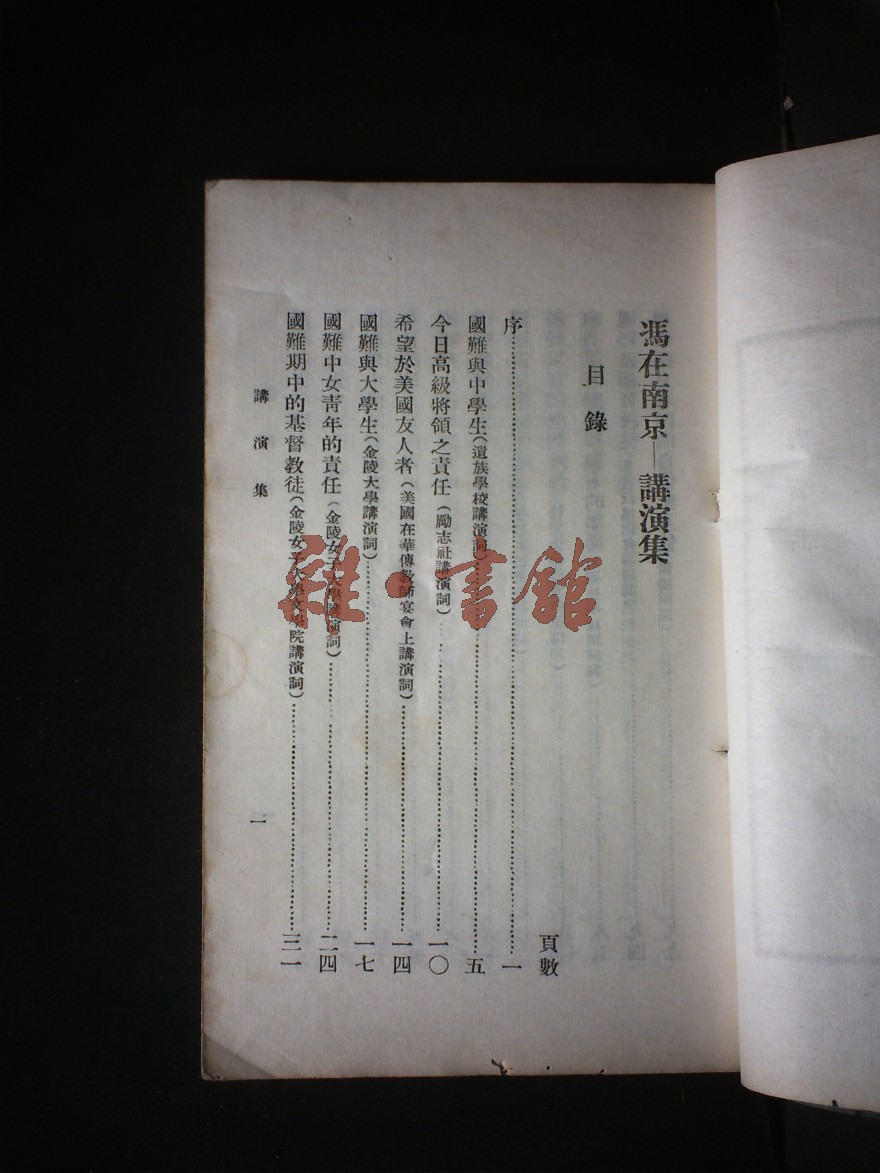 馮在南京—講演集
目錄
頁數
序……一
國難與中學生(遺族學校講演詞)……五
今日高級將領之責任(勵志社講演詞)……一〇
希望於美國友人者(美國在華傳教師宴會上講演詞)……一四
國難與大學生(金陵大學講演詞)……一七
國難中女青年的責任(金陵女子大學講演詞)……二四
國難期中的基督教徒(金陵女子大學文學院講演詞)……三一
講演集
一
雜·書館